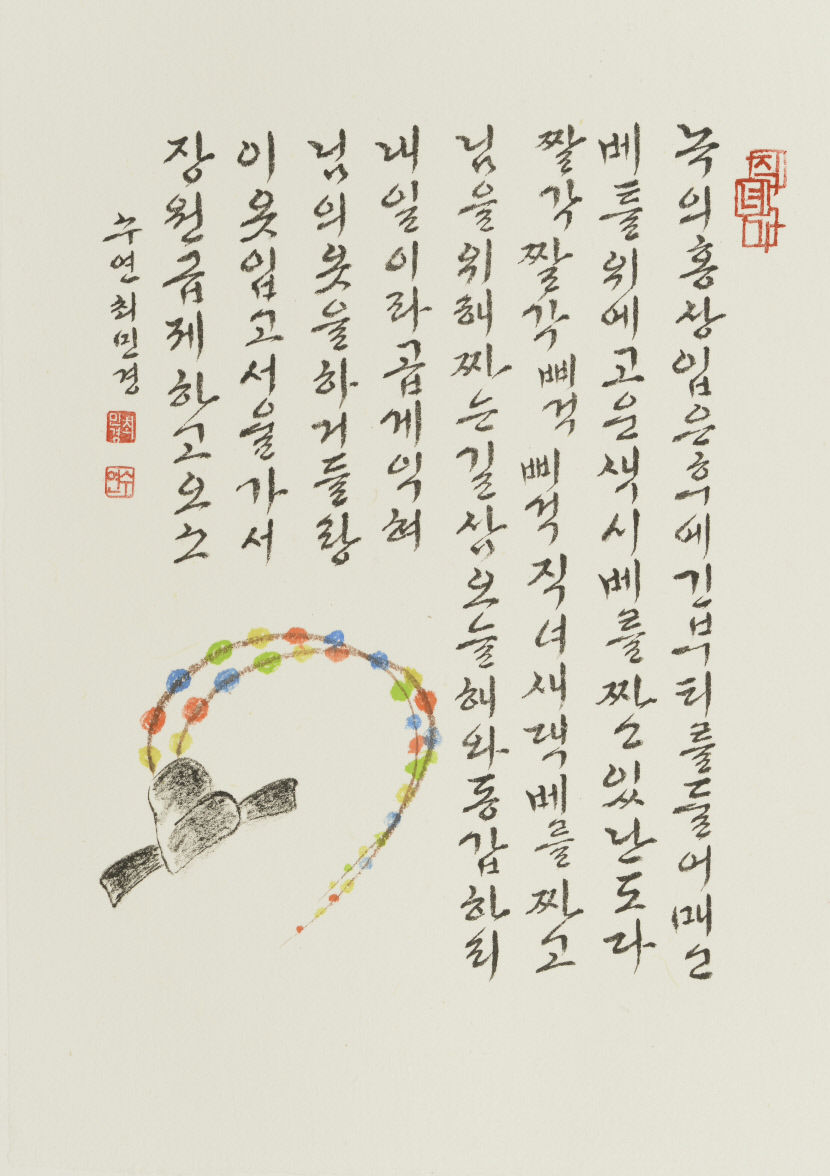 녹의홍상입은후에긴부티를둘어매고
베틀위에고운색시베를짜고있난도다
짤각짤각삐걱삐걱직녀새댁베를짜고
님을위해짜는길삼오늘해와동갑하리
내일이라곱게익혀
님의옷을하거들랑
이옷입고서울가서
장원급제하고오소
수연최민경
최민경
수연